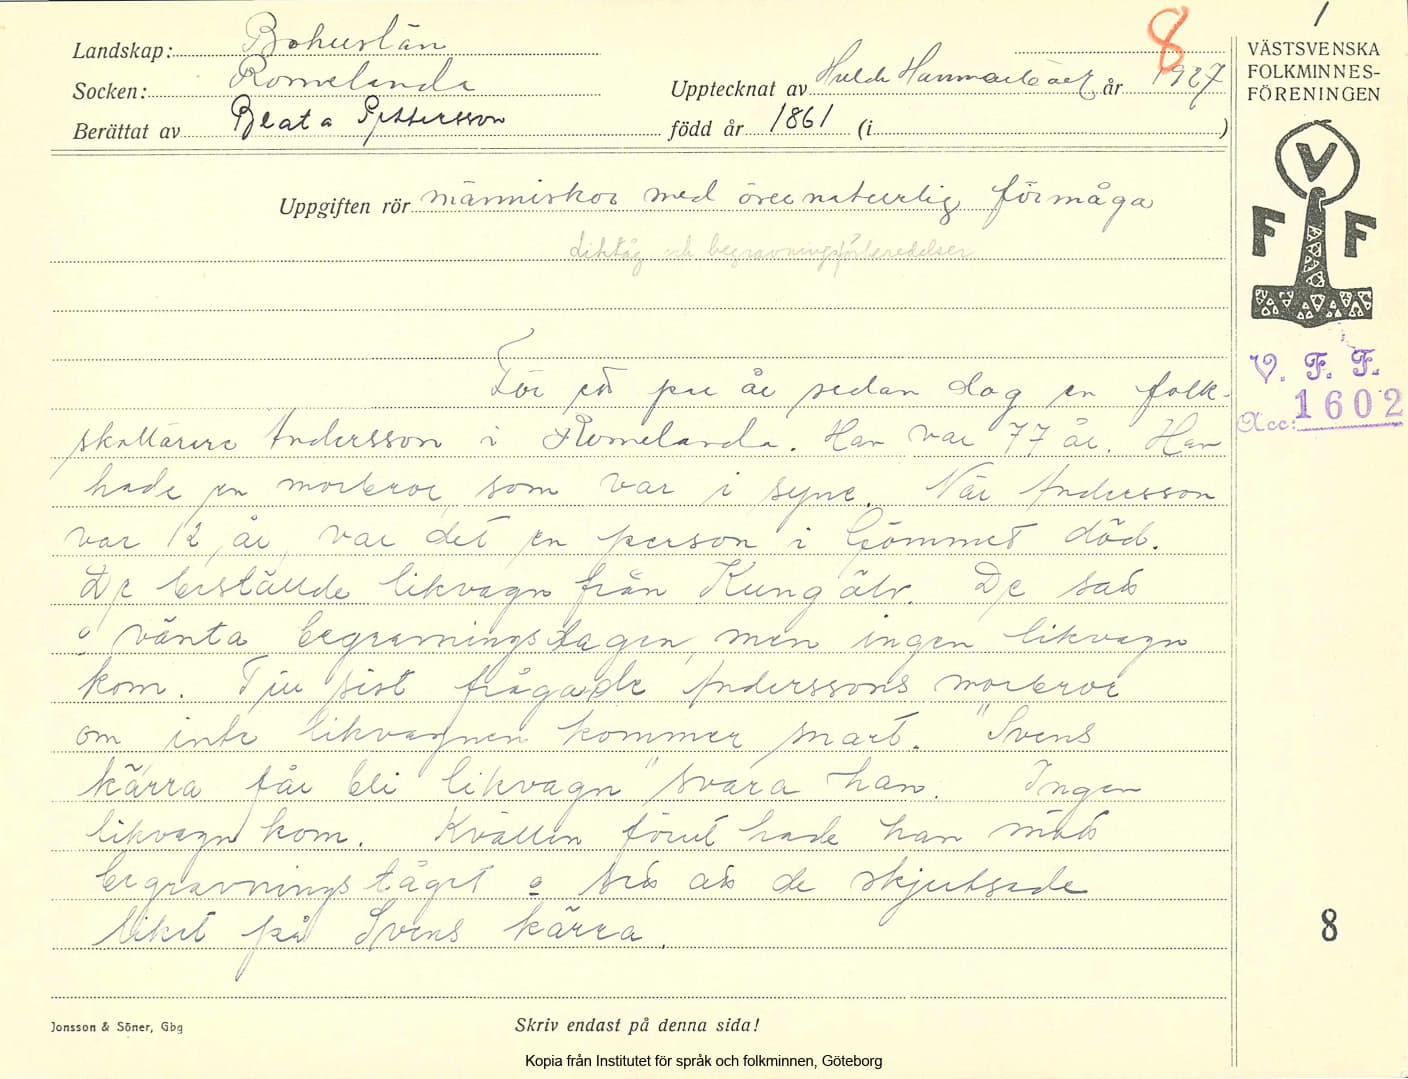 1
8
Landskap: Bohuslän
Socken: Romelanda
Upptecknat av Hulda Hammarbäck år 1927
Berättat av Beata Pettersson född år 1861 (i )
VÄSTSVENSKA
FOLKMINNES-
FÖRENINGEN
V
F F
V. F. F.
Acc: 1602
Uppgiften rör människor med övernaturlig förmåga
Liktåg och begravningsförberedelser
För ett par år sedan dog en folk-
skollärare Andersson i Romelanda. Han var 77 år. Han
hade en morbror, som var i syne. När Andersson
var 12 år, var det en person i Gömmet död.
De beställde likvagn från Kungälv. De satt
o vänta begravningsdagen, men ingen likvagn
kom. Till sist frågade Anderssons morbror
om inte likvagnen kommer snart. "Svens
kärra får bli likvagn" svara han. Ingen
likvagn kom. Kvällen förut hade han mött
begravningståget o sett att de skjutsade
liket på Svens kärra.
8
Jonsson & Söner, Gbg
Skriv endast på denna sida!
Kopia från Institutet för språk och folkminnen, Göteborg